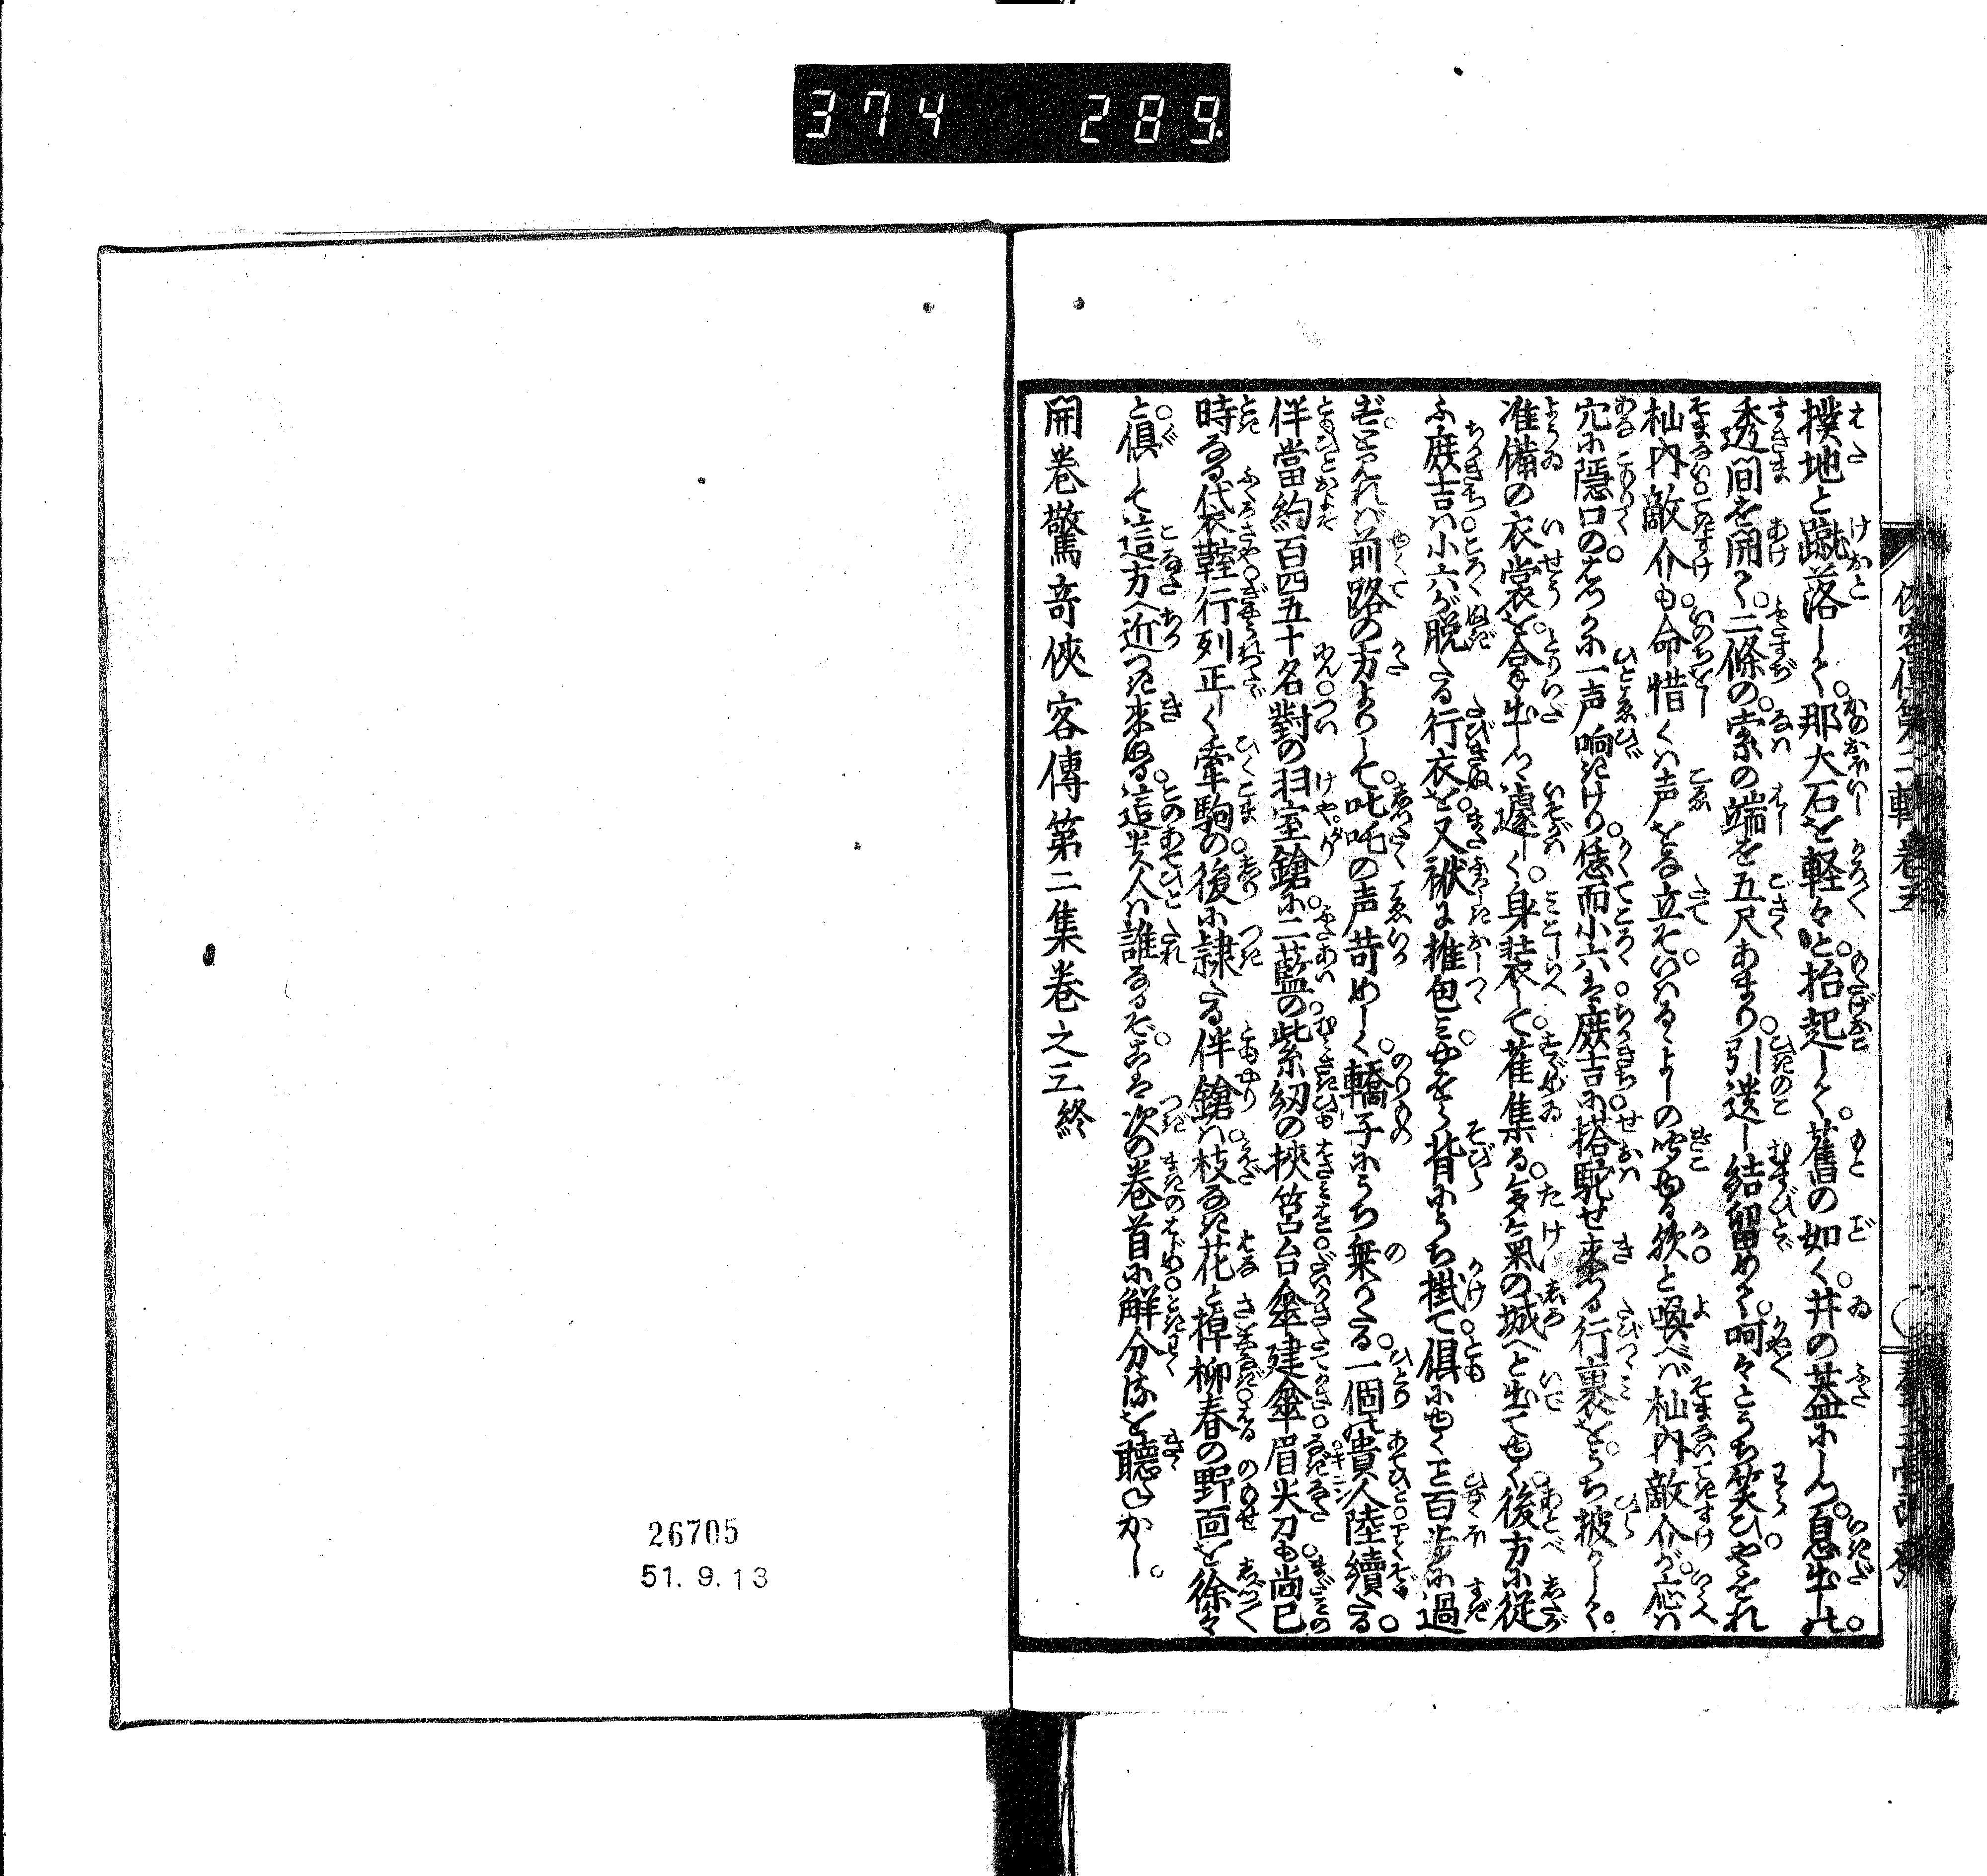 374 289
撲地と蹴落しく那大石を軽々と抬起しく舊の如く井の蓋にしつ息出しの
透間を開く二條の索の端を五尺あまり引遺し結留めく呵々とうち笑ひやをれ
杣内敵介も命惜くハ声をな立そいハるよしの聞ゆる欤と喚べバ杣内敵介が应ハ
穴に隠口のはつかに一声响きけり恁而小六ハ庭吉に搭駝せ來つる行裹をうち披かしく
准備の衣裳を拿出しつ遽しく身装して雀集る多氣の城へと出てゆく後方に従
ふ庭吉ハ小六が脱たる行衣を又袱に推包ミやをら背にうち掛て倶にゆくこと百歩に過
ぎざれバ前路の方よりして叱咤の声苛めしく轎子にうち乗りたる一個の貴人陸續たる
伴當約百四五十名對の羽室鎗に二藍の紫紐の挾筥台傘建傘眉尖刀も尚巳
時なる代衣鞋行列正しく牽駒の後に隷たる伴鎗ハ枝なき花と棹柳春の野面を徐々
と倶して這方へ近つき來ぬる這貴人ハ誰なるぞそは次の巻首に解分るを聴ねかし
開巻驚奇侠客傳第二集巻之五終
26705
51.9.13